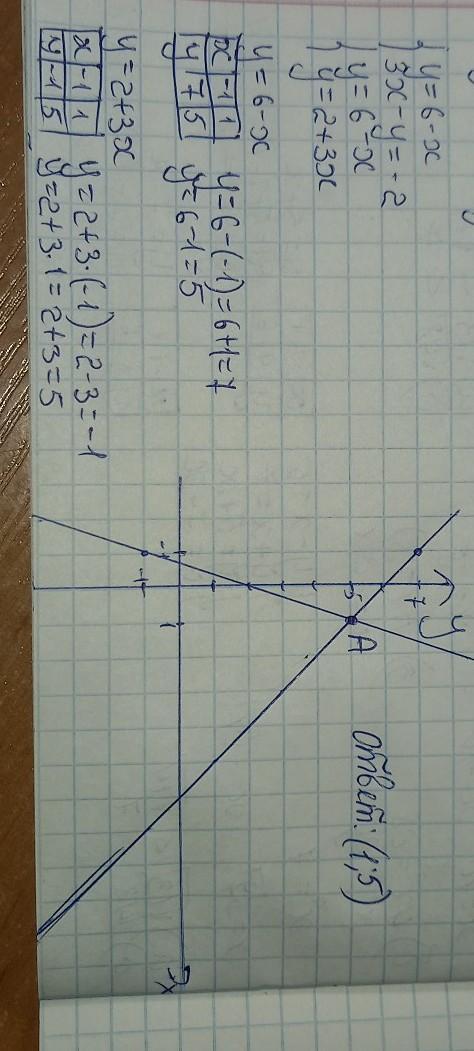 { y = 6 - x
{ 3x - y = -2
{ y = 6 - x
{ y = 2 + 3x
y
y = 6 - x
x | -1 | 1
y | 7 | 5
y = 6 - (-1) = 6 + 1 = 7
y = 6 - 1 = 5
y = 2 + 3x
x | -1 | 1
y | -1 | 5
y = 2 + 3 · (-1) = 2 - 3 = -1
y = 2 + 3 · 1 = 2 + 3 = 5
y
7
5
A
-1
1
-1
x
Ответ: (1; 5)